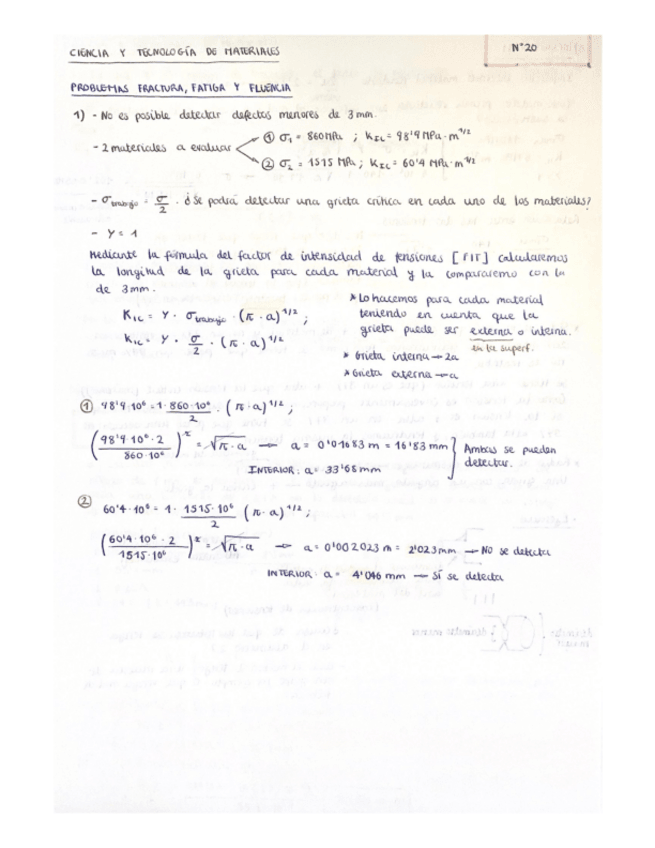 CIENCIA Y TECNOLOGÍA DE MATERIALES
Nº20
PROBLEMAS FRACTURA, FATIGA Y FLUENCIA
1) - No es posible detectar defectos menores de 3mm.
- 2 materiales a evaluar
① σ₁ = 860MPa ; K_IC = 98'9 MPa·m^1/2
② σ₂ = 1515 MPa ; K_IC = 60'4 MPa·m^1/2
- σtrabajo = σ/2 . ¿Se podrá detectar una grieta crítica en cada uno de los materiales?
- Y = 1
Mediante la fórmula del factor de intensidad de tensiones [FIT] calcularemos
la longitud de la grieta para cada material y la compararemos con la
de 3mm.
K_IC = Y · σtrabajo · (π · a)^1/2 ;
K_IC = Y · σ/2 · (π · a)^1/2
* Lo hacemos para cada material
teniendo en cuenta que la
grieta puede ser externa o interna.
en la superf.
* Grieta interna → 2a
* Grieta externa → a
① 98'9·10⁶ = 1· 860·10⁶/2 · (π·a)^1/2 ;
(98'9·10⁶·2 / 860·10⁶)² = √π·a → a = 0'01683 m = 16'83 mm
INTERIOR: a = 33'68 mm
Ambas se pueden
detectar.
② 60'4·10⁶ = 1· 1515·10⁶/2 (π·a)^1/2 ;
(60'4·10⁶·2 / 1515·10⁶)² = √π·a → a = 0'002023 m = 2'023mm → No se detecta
INTERIOR: a = 4'046 mm → Sí se detecta